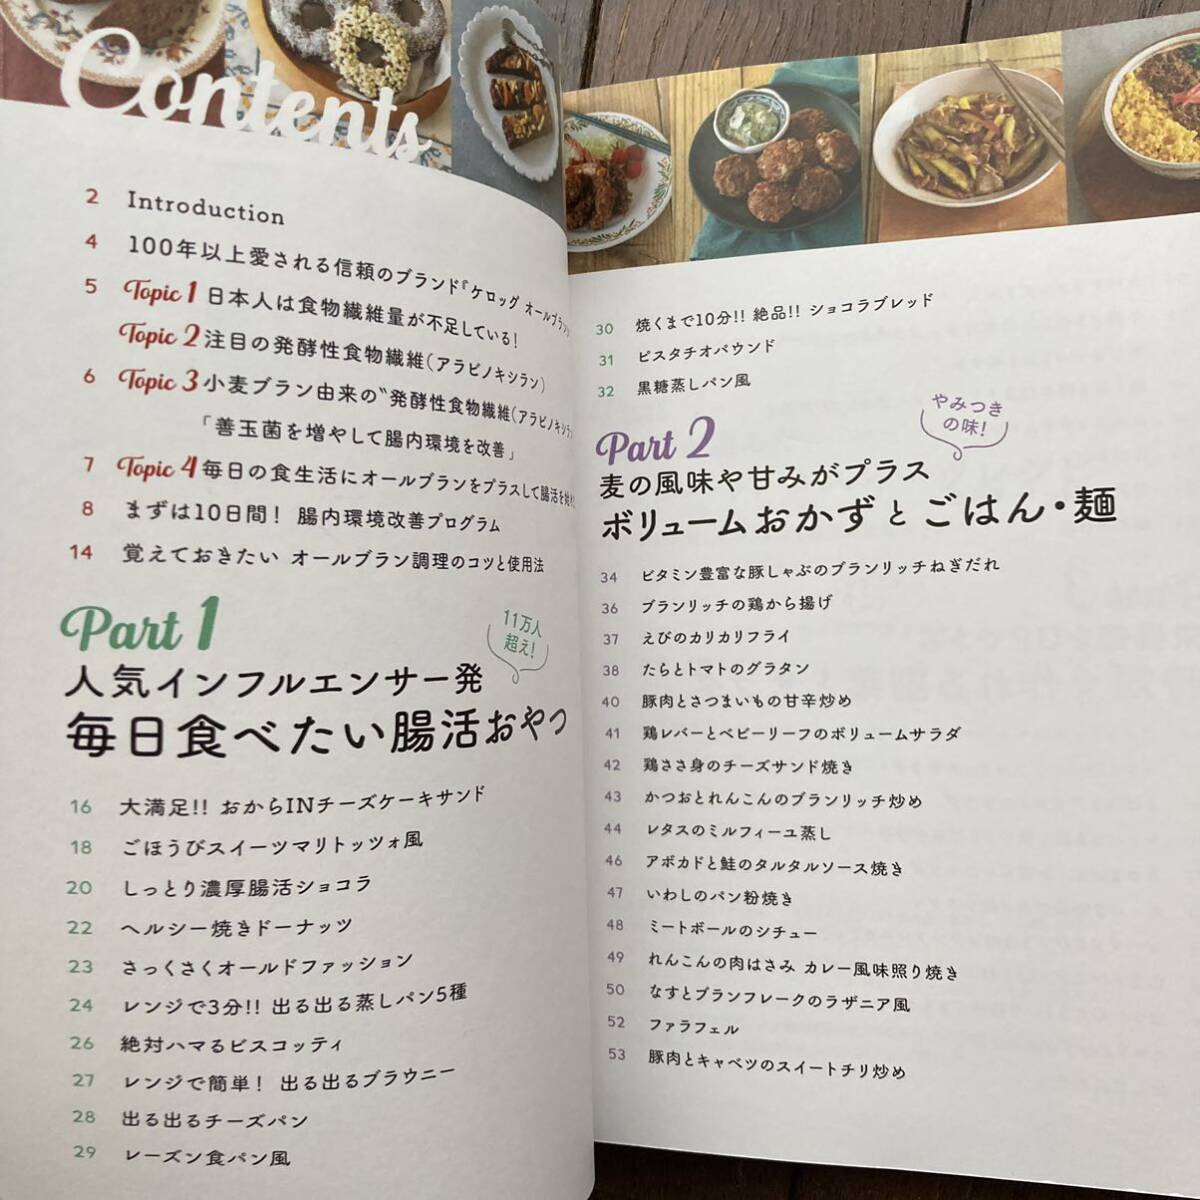 Contents
2 Introduction
4 100年以上愛される信頼のブランド『ケロッグ オールブラン
5 Topic 1 日本人は食物繊維量が不足している!
Topic 2 注目の発酵性食物繊維(アラビノキシラン)
6 Topic 3 小麦ブラン由来の〝発酵性食物繊維(アラビノキシラン
「善玉菌を増やして腸内環境を改善」
7 Topic 4 毎日の食生活にオールブランをプラスして腸活を
8 まずは10日間! 腸内環境改善プログラム
14 覚えておきたい オールブラン調理のコツと使用法
Part 1
11万人
超え!
人気インフルエンサー発
毎日食べたい腸活おやつ
16 大満足!! おからINチーズケーキサンド
18 ごほうびスイーツマリトッツォ風
20 しっとり濃厚腸活ショコラ
22 ヘルシー焼きドーナッツ
23 さっくさくオールドファッション
24 レンジで3分!! 出る出る蒸しパン5種
26 絶対ハマるビスコッティ
27 レンジで簡単! 出る出るブラウニー
28 出る出るチーズパン
29 レーズン食パン風
30 焼くまで10分!! 絶品!! ショコラブレッド
31 ピスタチオパウンド
32 黒糖蒸しパン風
Part 2
やみつき
の味!
麦の風味や甘みがプラス
ボリュームおかずとごはん・麺
34 ビタミン豊富な豚しゃぶのブランリッチねぎだれ
36 ブランリッチの鶏から揚げ
37 えびのカリカリフライ
38 たらとトマトのグラタン
40 豚肉とさつまいもの甘辛炒め
41 鶏レバーとベビーリーフのボリュームサラダ
42 鶏ささ身のチーズサンド焼き
43 かつおとれんこんのブランリッチ炒め
44 レタスのミルフィーユ蒸し
46 アボカドと鮭のタルタルソース焼き
47 いわしのパン粉焼き
48 ミートボールのシチュー
49 れんこんの肉はさみ カレー風味照り焼き
50 なすとブランフレークのラザニア風
52 ファラフェル
53 豚肉とキャベツのスイートチリ炒め